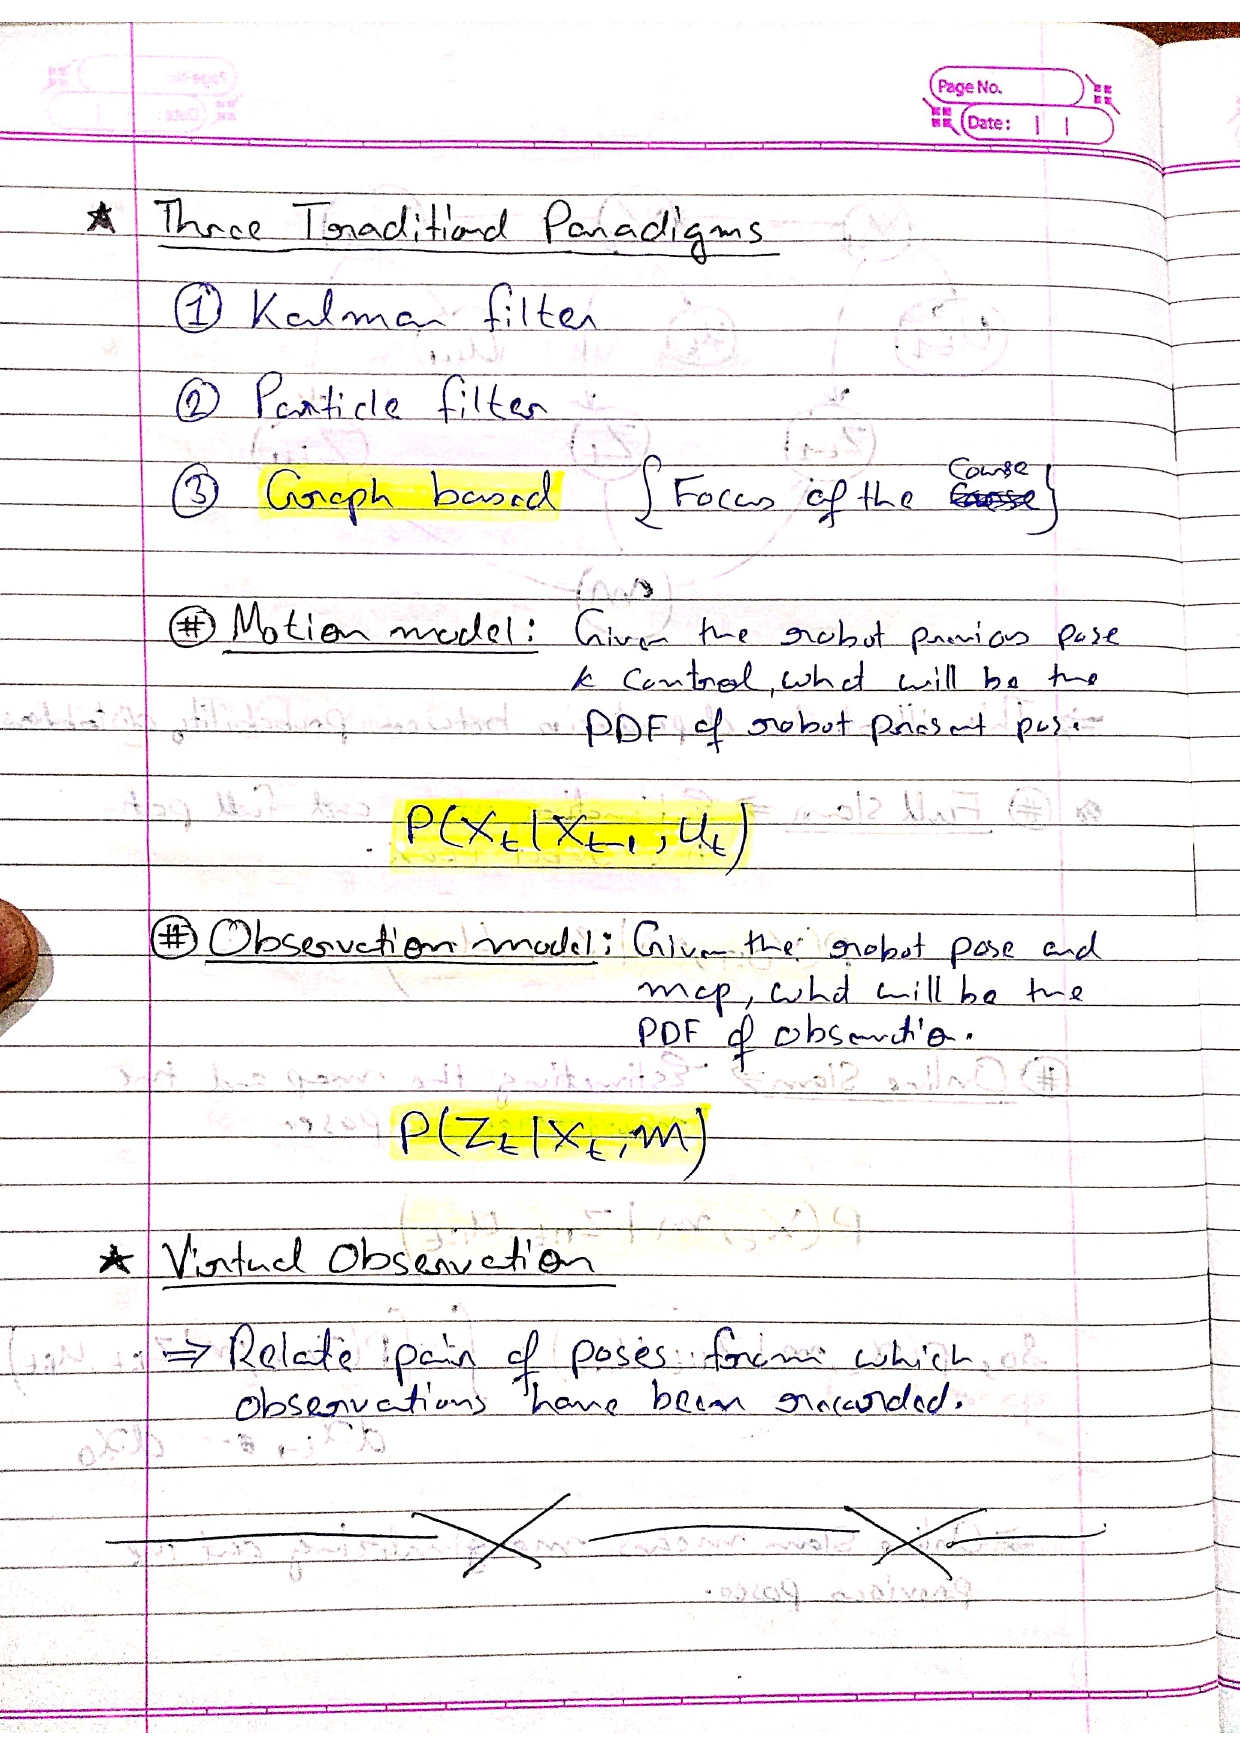 Page No.
Date: | |
★ Three Traditional Paradigms
① Kalman filter
② Particle filter
③ Graph based { Focus of the Course }
# Motion model: Given the robot previous pose
& control, what will be the
PDF of robot present pose
P(X_t | X_{t-1}, U_t)
# Observation model: Given the robot pose and
map, what will be the
PDF of observation.
P(Z_t | X_t, m)
★ Virtual Observation
⇒ Relate pair of poses from which
observations have been recorded.